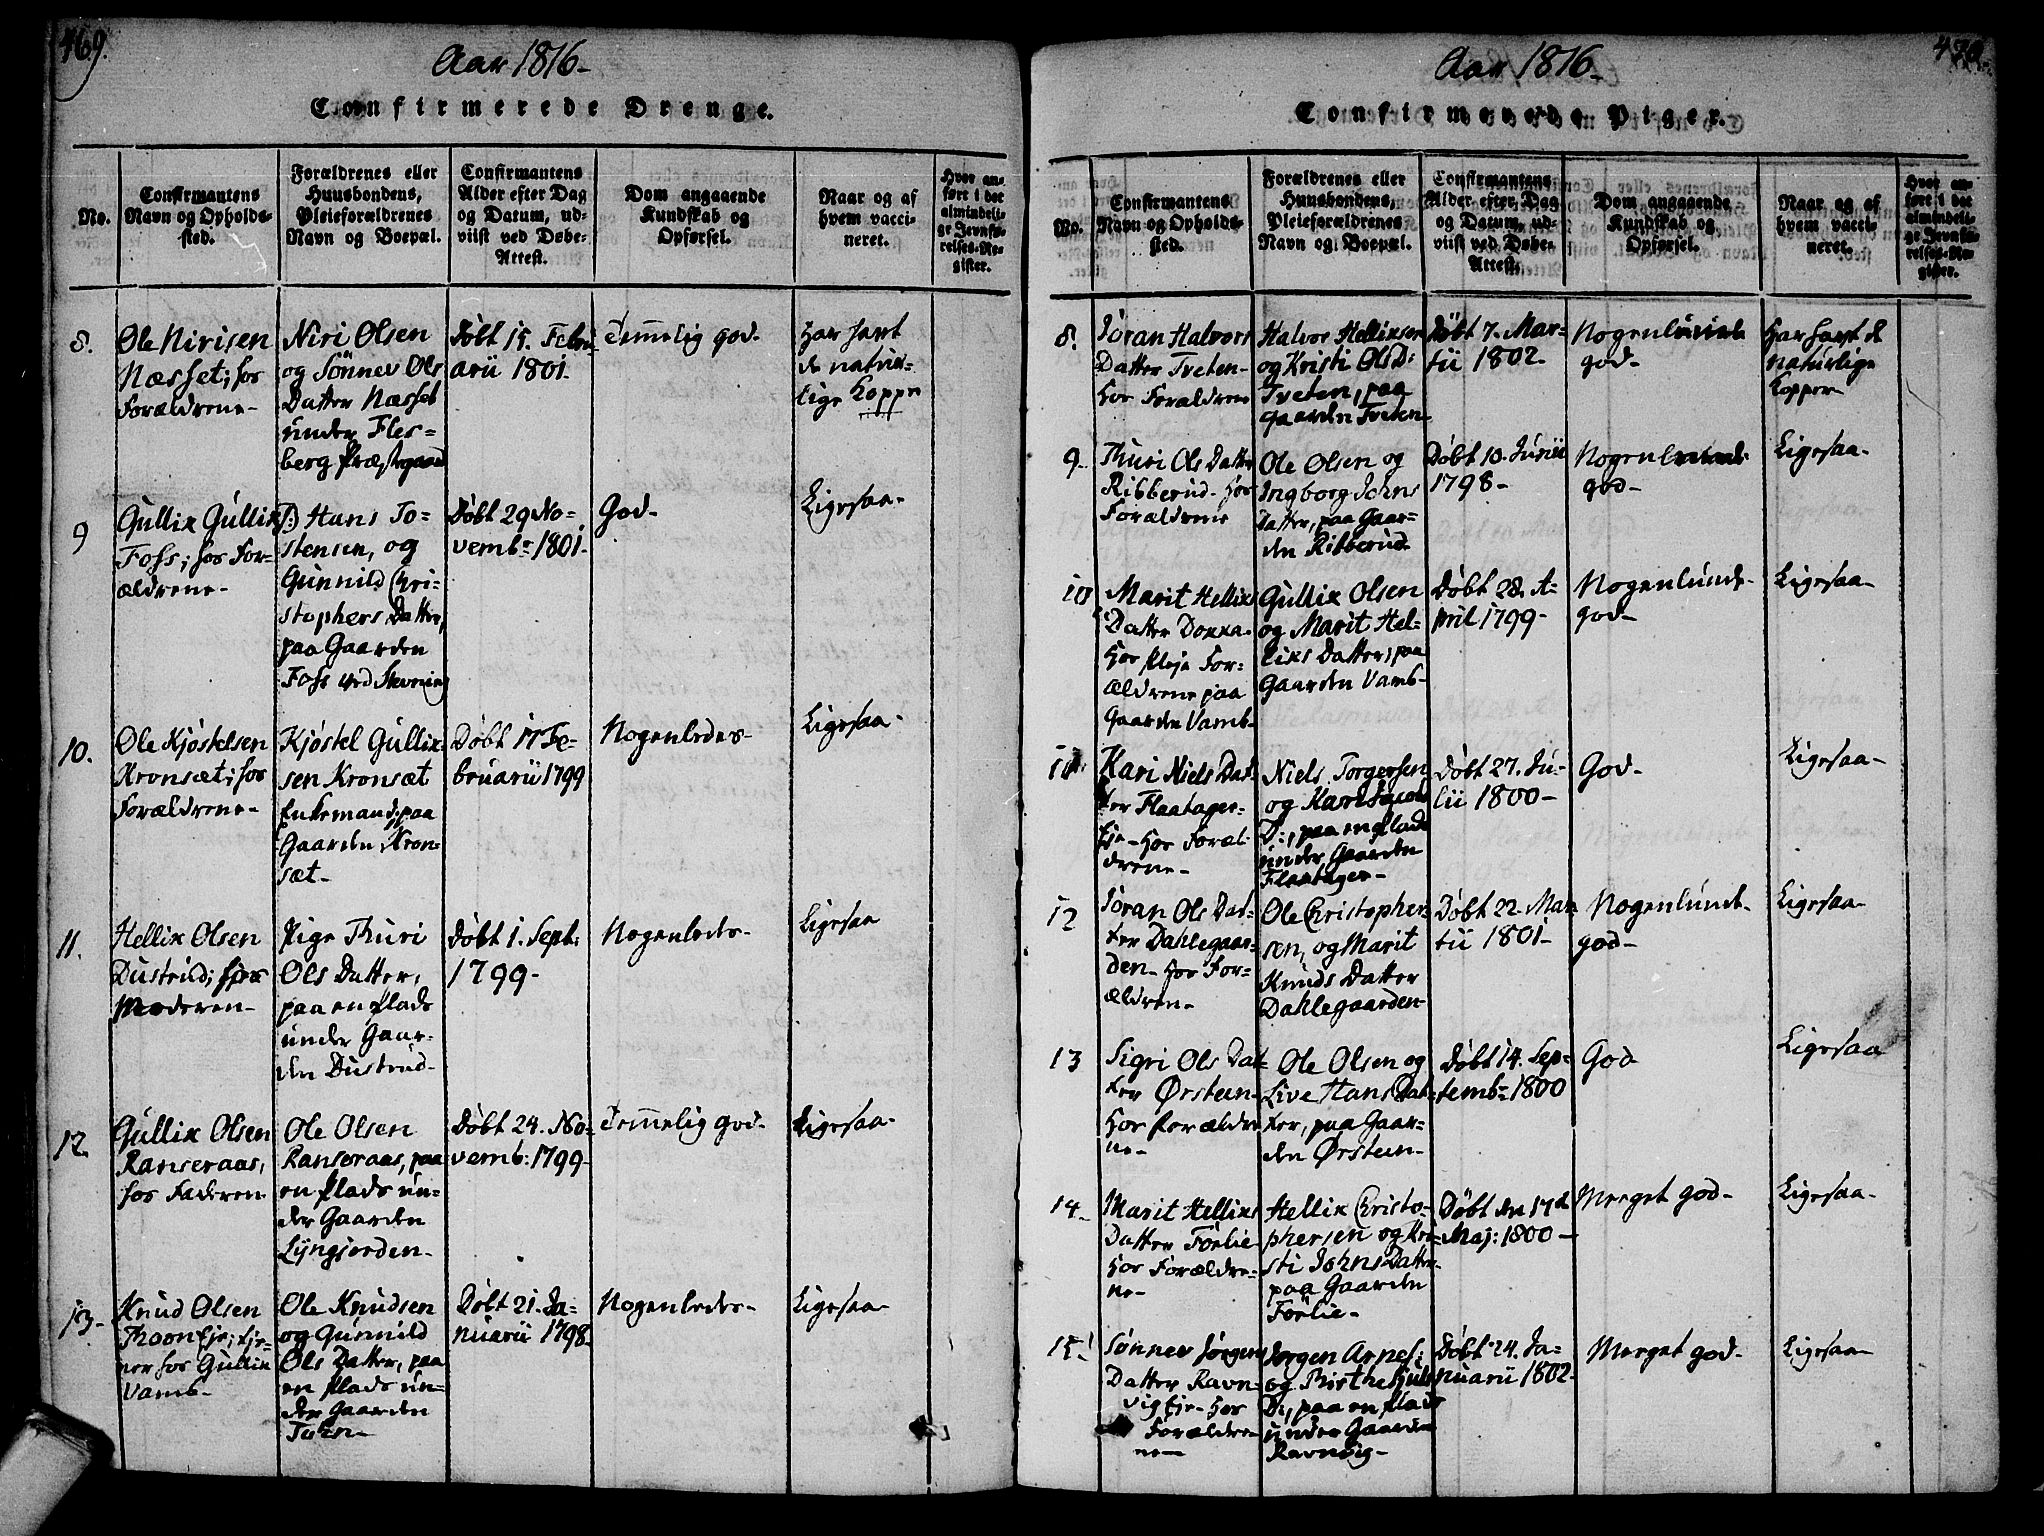 469.
Aar 1816-
Confirmerede Drenge.
No.
Confirmantens
Navn og Opholds-
sted.
Forældrenes eller
Huusbondens,
Pleieforældrenes
Navn og Boepæl.
Confirmantens
Alder efter Dag
og Datum, ud-
viist ved Døbe-
Attest.
Dom angaaende
Kundskab og
Opførsel.
Naar og af
hvem vacci-
neret.
Hvor an-
ført i det
almindeli-
ge Jevnfø-
relses-Re-
gister.
8.
Ole Nirisen
Næsset; hos
Forældrene-
Niri Olsen
og Sønnev Ols
Datter Næsset
under Fles-
berg Præstegaard
Døbt 15. Febru-
arii 1801.
Temmelig god.
Har havt
de natur-
lige Kopper
9
Gullix Gullix
Foss; hos For-
ældrene-
Hans To-
stensen, og
Gunnild Chri-
stophers Datter,
paa Gaarden
Foss ved
Døbt 29 No-
vembr 1801.
God-
Ligesaa-
10.
Ole Kjøstelsen
Kronsæt; hos
Forældrene-
Kjøstel Gullix-
sen Kronsæt
Enkemand; paa
Gaarden Kron-
sæt-
Døbt 17 Fe-
bruarii 1799
Nogenledes-
Ligesaa-
11.
Hellix Olsen
Dustrud; hos
Moderen-
Pige Thuri
Ols Datter,
paa en Plads
under Gaar-
den Dustrud-
Døbt 1. Sept:
1799-
Nogenledes-
Ligesaa
12.
Gullix Olsen
Ranseraas,
hos Faderen
Ole Olsen
Ranseraas, paa
en Plads un-
der Gaarden
Lyngjorden-
Døbt 24. No-
vemb: 1799-
Temmelig god-
Ligesaa-
13-
Knud Olsen
Thoon Eje; tje-
ner hos Gullix
Vamb-
Ole Knudsen
og Gunnild
Ols Datter, paa
en Plads un-
der Gaarden
Tohn-
Døbt 21. Ja-
nuarii 1798.
Nogenledes-
Ligesaa-
470.
Aar 1816-
Confirmerede Piger.
No.
Confirmantens
Navn og Opholds-
sted.
Forældrenes eller
Huusbondens,
Pleieforældrenes
Navn og Boepæl.
Confirmantens
Alder efter Dag
og Datum, ud-
viist ved Døbe-
Attest.
Dom angaaende
Kundskab og
Opførsel.
Naar og af
hvem vacci-
neret.
Hvor an-
ført i det
almindeli-
ge Jevnfø-
relses-Re-
gister.
8.
Jøran Halvors
Datter Tveten-
Hos Forældrene
Halvor Hellixsen
og Kristi Ols D:
Tveten, paa
Gaarden Tveten
Døbt 7. Mar-
tii 1802-
Nogenlunde
god-
Har havt de
naturlige
Kopper-
9-
Thuri Ols Datter
Ribberud- Hos
Forældrene
Ole Olsen og
Ingborg Johns
Datter, paa Gaar-
den Ribberud
Døbt 10. Junii
1798-
Nogenlunde
god-
Ligesaa-
10
Marit Hellix
Datter Dokka-
Hos Pleje For-
ældrene paa
Gaarden Vamb-
Gullix Olsen
og Marit Hel-
lixs Datter, paa
Gaarden Vamb-
Døbt 28. A-
pril 1799-
Nogenlunde
god-
Ligesaa-
11
Kari Niels Dat-
ter Flaatager-
Eje- Hos Foræl-
drene-
Niels Torgersen
og Kari
D:, paa en Plads
under Gaarden
Flaatager-
Døbt 27. Ju-
lii 1800-
God-
Ligesaa-
12
Jøran Ols Dat-
ter Dahlegaar-
den- Hos For-
ældren-
Ole Christopher-
sen, og Marit
Knuds Datter
Dahlegaarden-
Døbt 22. Mar-
tii 1801-
Nogenlund-
god-
Ligesaa-
13
Sigri Ols Dat-
ter Ørsteen-
Hos Forældre
ne-
Ole Olsen og
Live Hans Dat-
ter, paa Gaar-
den Ørsteen-
Døbt 14. Sep-
temb- 1800
God
Ligesaa
14-
Marit Hellixs
Datter Förlie-
Hos Forældre-
ne-
Hellix Christo-
phersen og Kri-
sti Johns Datter-
paa Gaarden
Förlie-
Døbt den 17de
Maj: 1800-
Meeget god-
Ligesaa-
15.
Sønnev Jørgens
Datter Ravn-
vig Eje- Hos
Forældre
ne-
Jørgen Arnes:
og Birthe
D:, paa en Plads
under Gaarden
Ravnvig-
Døbt 24. Ja-
nuarii 1802-
Meeget god-
Ligesaa-